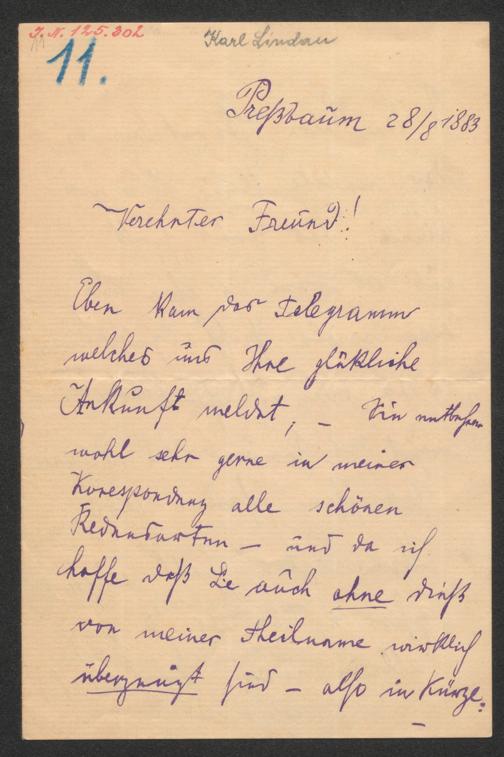 J. N. 125.302
11
Karl Lindau
11.
Preßbaum 28/8 1883
Verehrter Freund!
Eben kam das Telegramm
welches uns Ihre glükliche
Ankunft meldet, – Sie entbehren
wohl sehr gerne in meiner
Korespondenz alle schönen
Redensarten – und da ich
hoffe daß Sie auch ohne dieß
von meiner Theilname wirklich
überzeugt sind – also in Kürze: